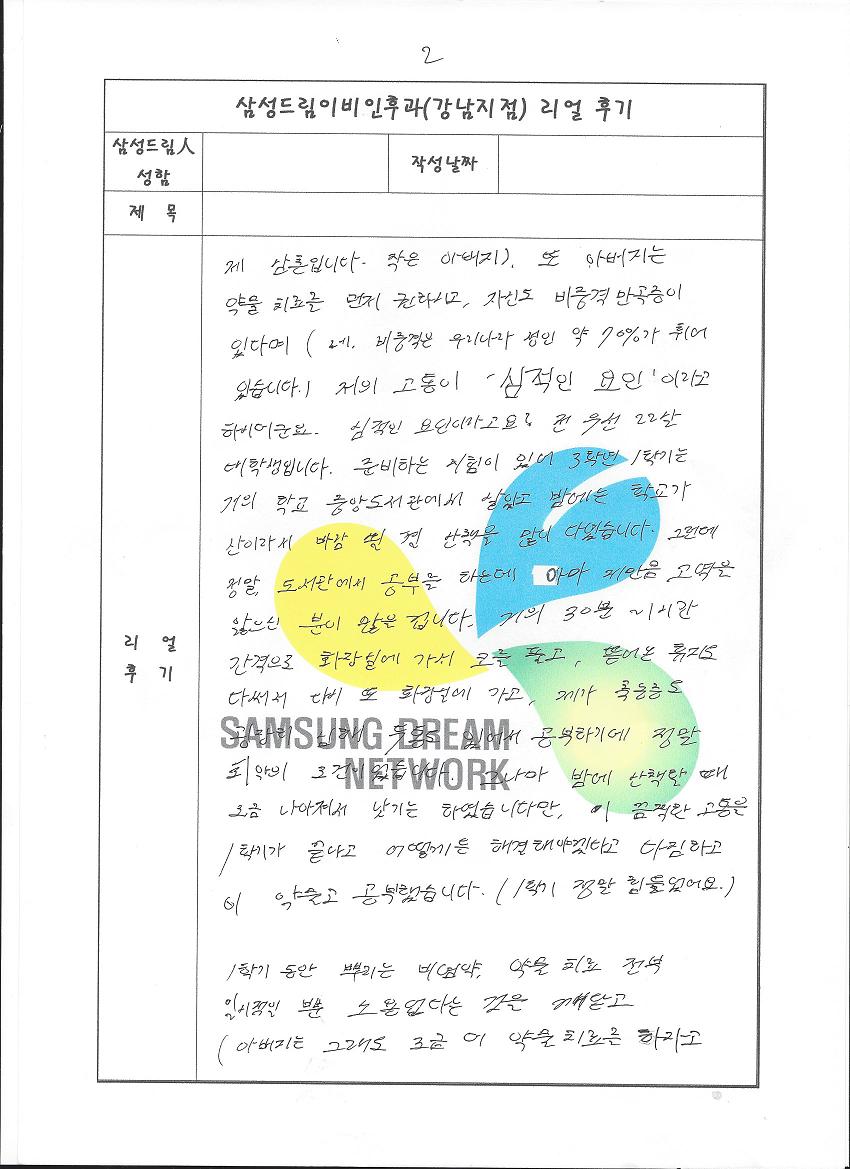 2
삼성드림이비인후과(강남지점) 리얼 후기
삼성드림人 성함
작성날짜
제 목
리 얼 후 기
제 삼촌입니다. 작은 아버지). 또 아버지는
약물 치료를 먼저 권하시고, 자신도 비중격 만곡증이
있다며 ( 네. 비중격은 우리나라 성인 약 70%가 휘어
있습니다.) 저의 고통이 '심적인 요인'이라고
하시더군요. 심적인 요인이라고요? 전 우선 22살
대학생입니다. 준비하는 시험이 있어 3학년 1학기는
거의 학교 중앙도서관에서 살았고 밤에는 학교가
산이라서 바람 쐴 겸 산책을 많이 다녔습니다. 그런데
정말, 도서관에서 공부를 하는데 아마 저만큼 고역을
앓으신 분이 많을 겁니다. 거의 30분 ~1시간
간격으로 화장실에 가서 코를 풀고, 뜯어온 휴지도
다써서 다시 또 화장실에 가고, 제가 축농증도
굉장히 심해 두통도 있어서 공부하기에 정말
최악의 조건이었습니다. 그나마 밤에 산책할 때
조금 나아져서 낫기는 하였습니다만, 이 끔찍한 고통을
1학기가 끝나고 어떻게든 해결해야겠다고 다짐하고
이 악물고 공부했습니다. (1학기 정말 힘들었어요.)
1학기 동안 뿌리는 비염약, 약물 치료 전부
일시적인 뿐 소용없다는 것을 깨닫고
(아버지는 그래도 조금 더 약물 치료를 하자고
SAMSUNG DREAM
NETWORK